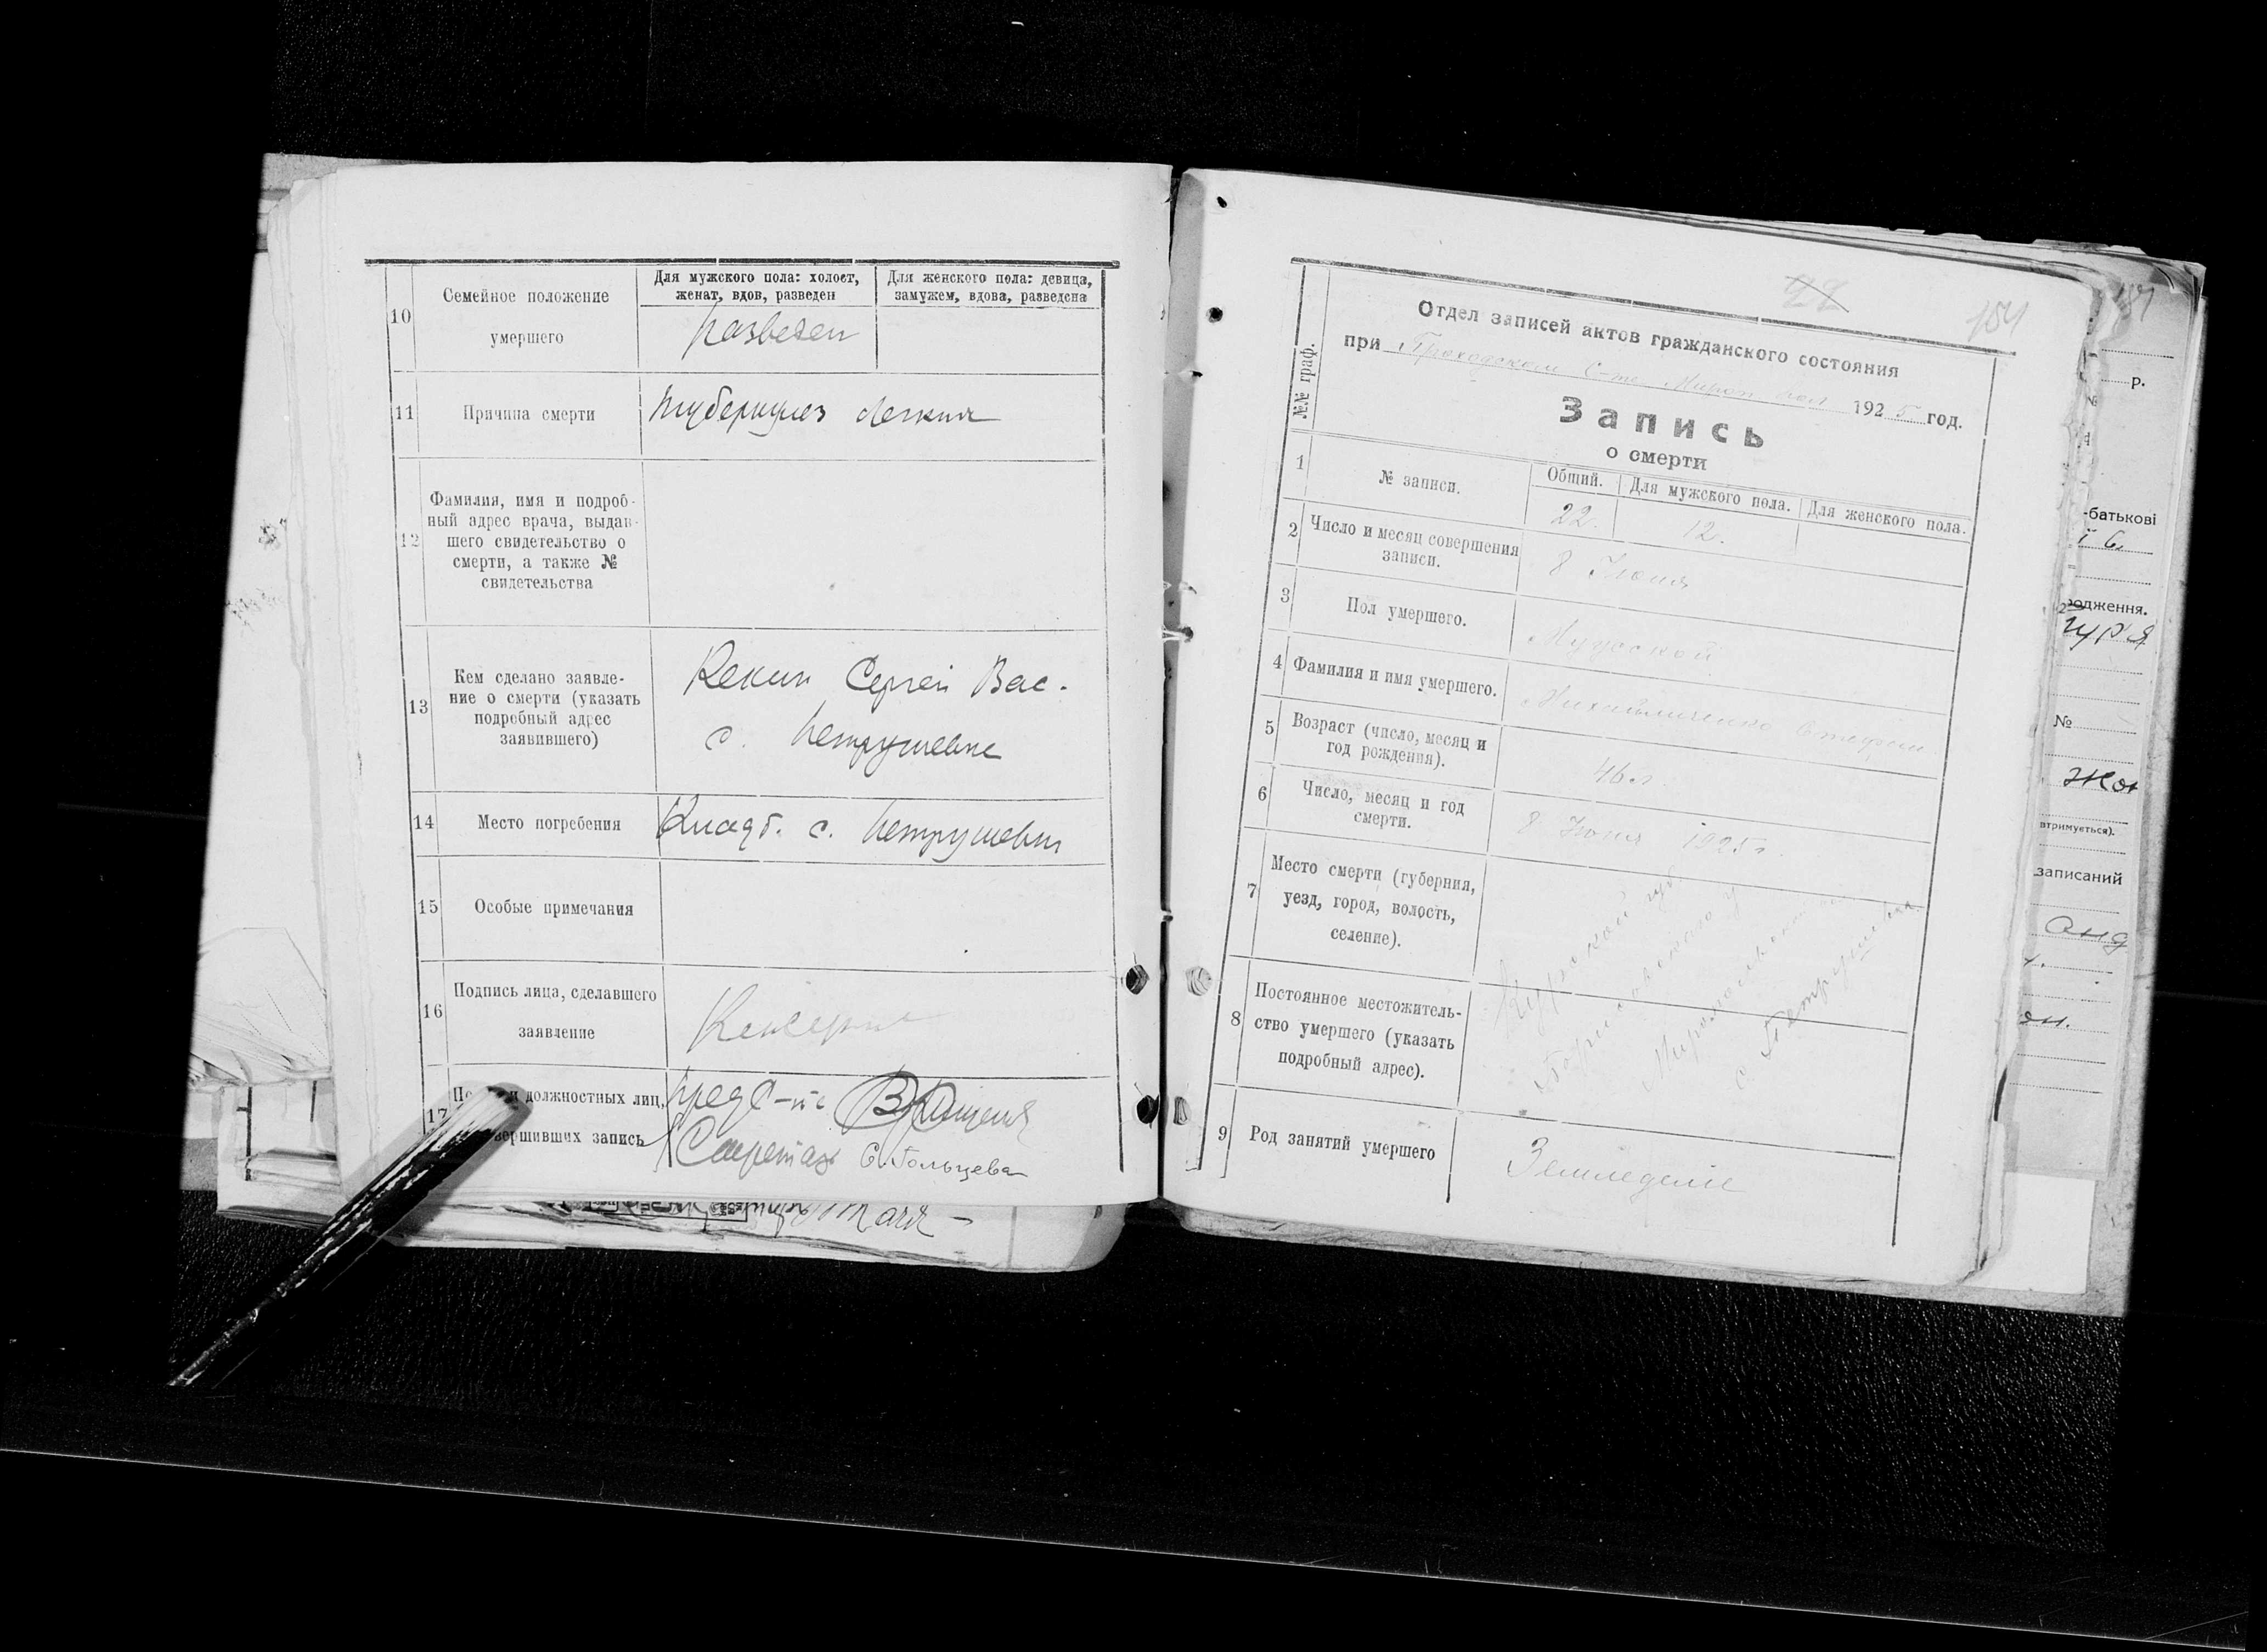 10
Семейное положение
умершего
Для мужского пола: холост,
женат, вдов, разведен
Для женского пола: девица,
замужем, вдова, разведена
Разведен
11
Причина смерти
Туберкулез легких
12
Фамилия, имя и подроб-
ный адрес врача, выдав-
шего свидетельство о
смерти, а также №
свидетельства
13
Кем сделано заявле-
ние о смерти (указать
подробный адрес
заявившего)
Кекин Сергей Вас.
с. Петрушевке
14
Место погребения
Кладб. с. Петрушевки
15
Особые примечания
16
Подпись лица, сделавшего
заявление
17
должностных лиц,
вершивших запись
Пред С-та
Секретарь С. Гольцева
154
№№ граф.
Отдел записей актов гражданского состояния
при С-те Мироп. вол 1925 год.
Запись
о смерти
1
№ записи.
Общий.
Для мужского пола.
Для женского пола.
22.
12.
2
Число и месяц совершения
записи.
8 Июня
3
Пол умершего.
Мужской
4
Фамилия и имя умершего.
Михайличенко Стефан
5
Возраст (число, месяц и
год рождения).
46 л.
6
Число, месяц и год
смерти.
8 Июня 1925 г.
7
Место смерти (губерния,
уезд, город, волость,
селение).
8
Постоянное местожитель-
ство умершего (указать
подробный адрес).
Курской губ.
с. Петрушевка
9
Род занятий умершего
Земледелие
р.
№
-батькові
одження.
№
втримується).
записаний